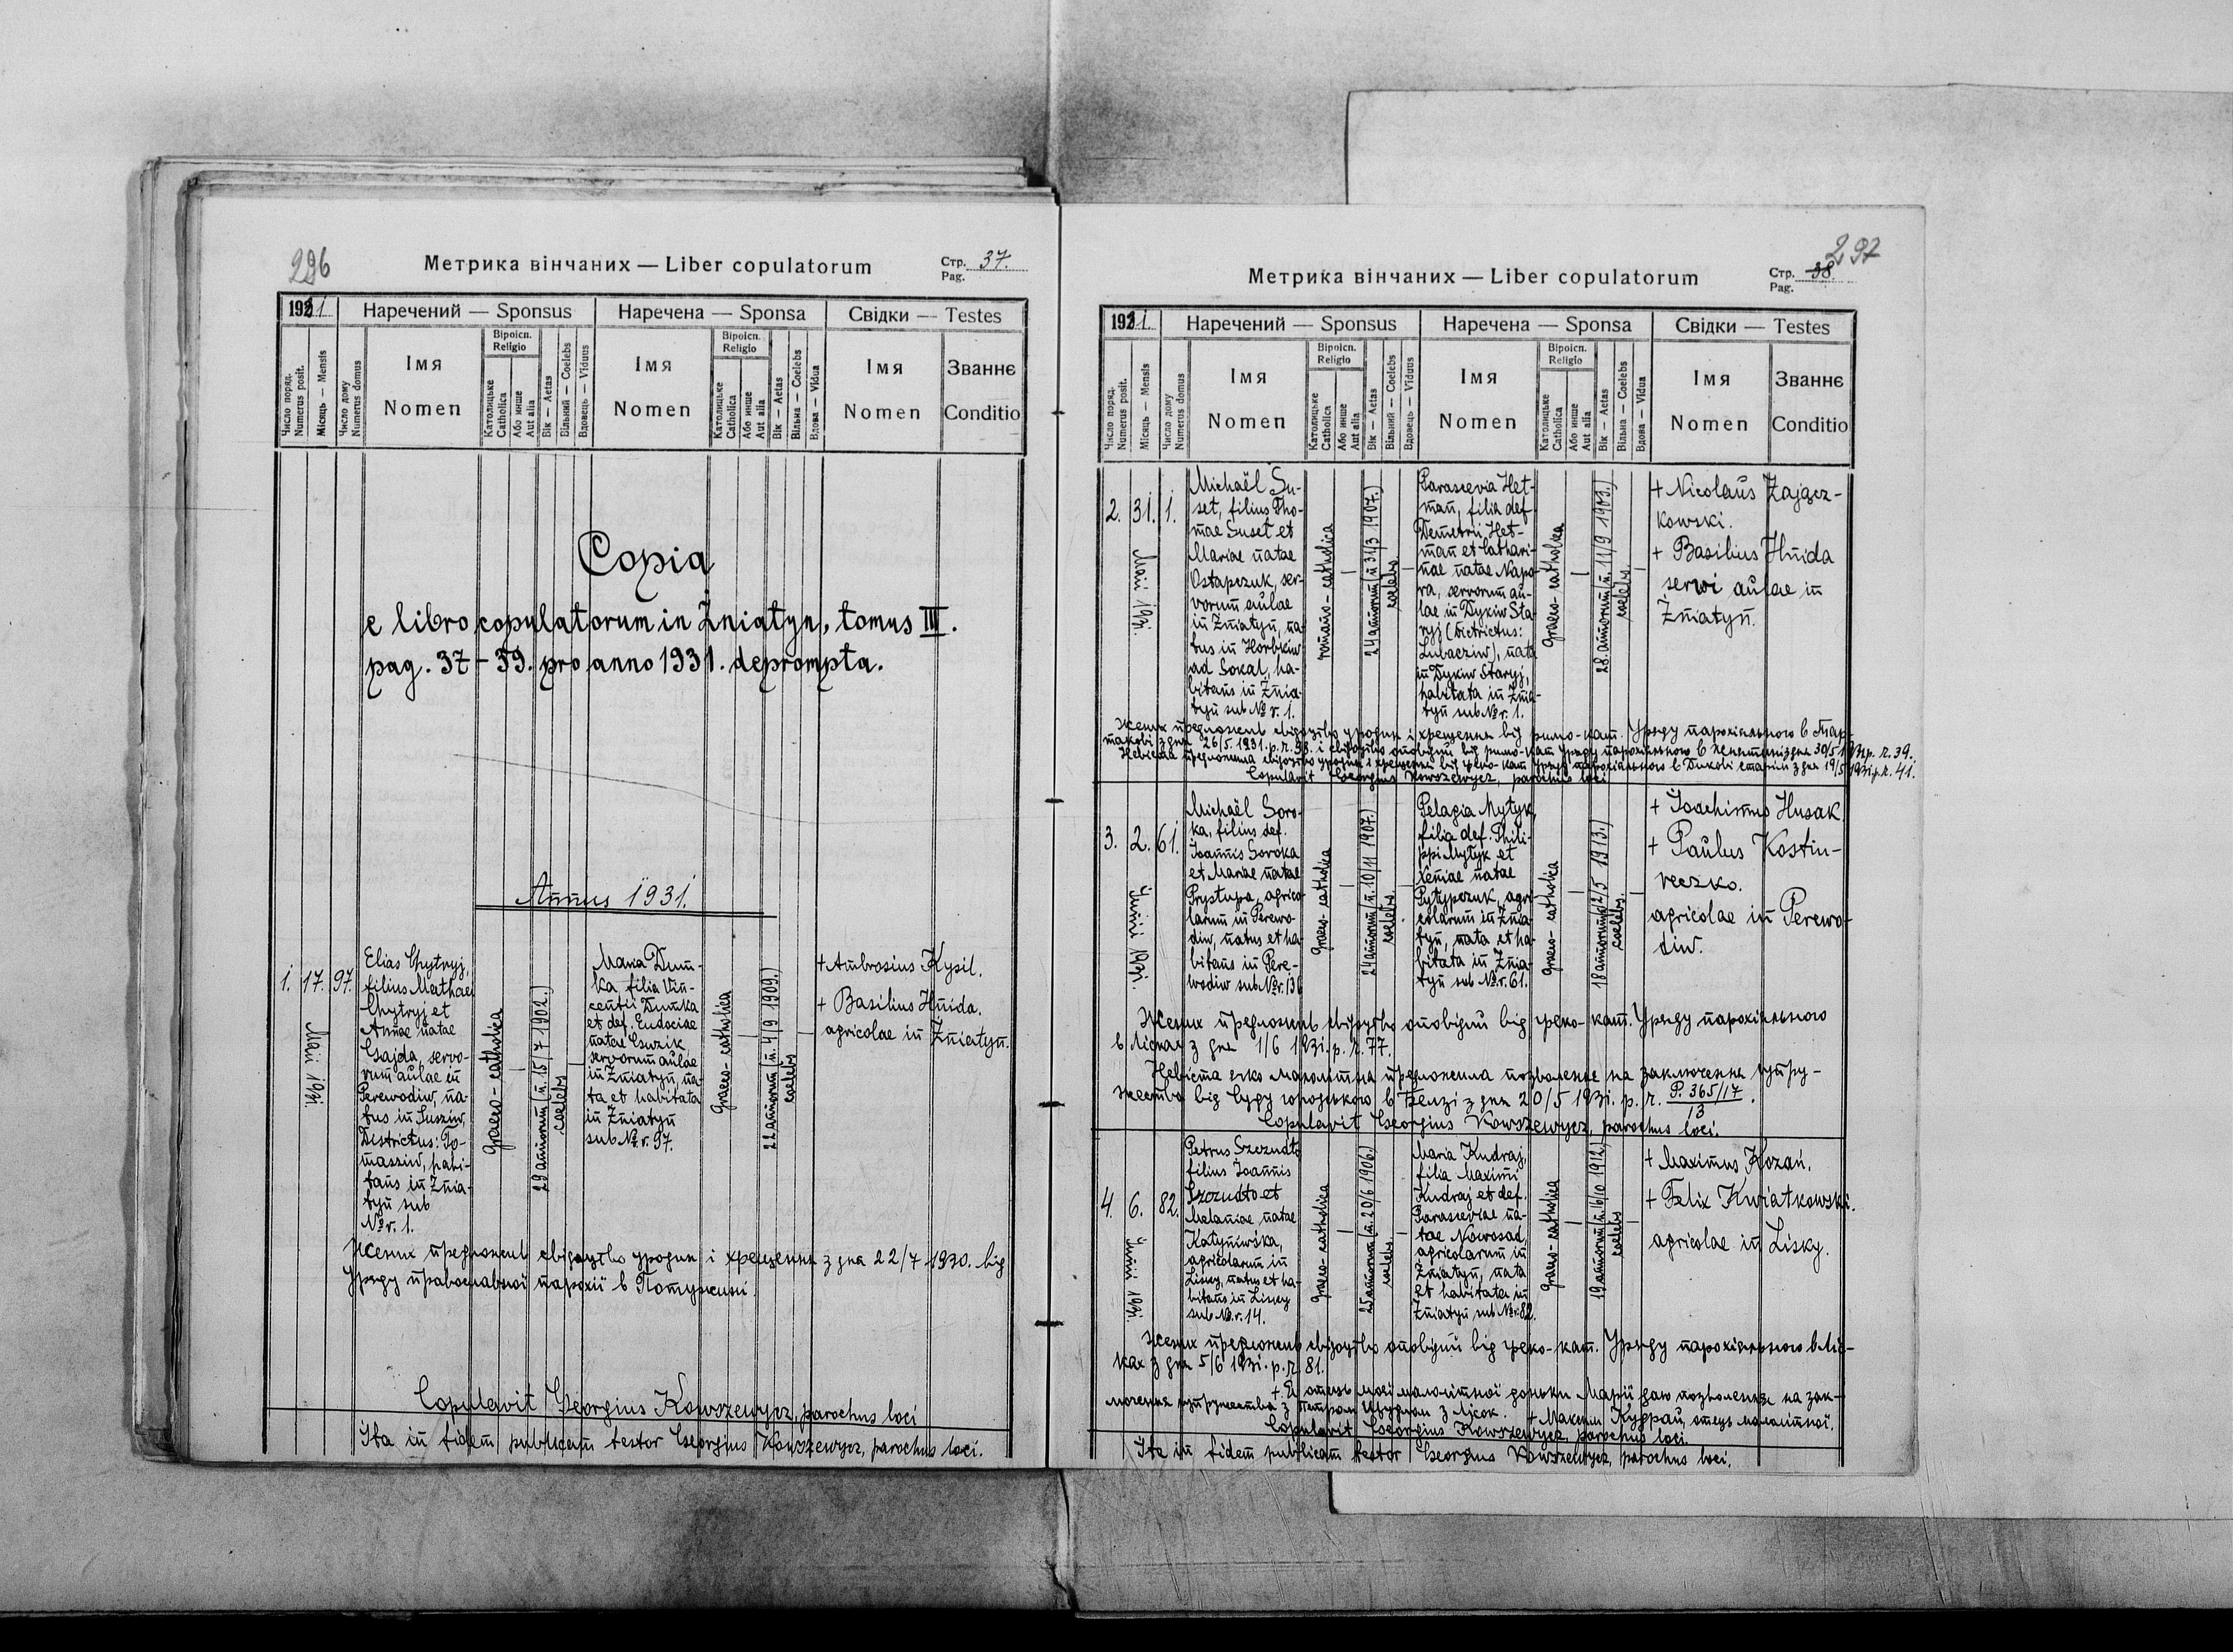 296
Метрика вінчаних — Liber copulatorum
Стр. 37.
Pag.
1931
Наречений — Sponsus
Наречена — Sponsa
Свідки — Testes
Число поряд.
Numerus posit.
Місяць — Mensis
Число дому
Numerus domus
Імя
Nomen
Віроісп.
Religio
Католицьке
Catholica
Або инше
Aut alia
Вік — Aetas
Вільний — Coelebs
Вдовець — Viduus
Імя
Nomen
Віроісп.
Religio
Католицьке
Catholica
Або инше
Aut alia
Вік — Aetas
Вільна — Coelebs
Вдова — Vidua
Імя
Nomen
Званнє
Conditio
Copia
e libro copulatorum in Żniatyn, tomus III.
pag. 37 – 39. pro anno 1931. deprompta.
Annus 1931.
1. 17. 97.
Maii 1931.
Elias Chytryj,
filius Mathaei
Chytryj et
Annae natae
Gajda, servo-
rum aulae in
Perewodiw, na-
tus in Susziw,
Districtus: To-
masziw, habi-
tans in Żnia-
tyn sub
No. r. 1.
graeco-catholica
29 annorum (n. 15/7 1902.)
coelebs
Maria Dum-
ka, filia Vin-
centii Dumka
et def. Eudociae
natae Guzik,
servorum aulae
in Żniatyn, na-
ta et habitata
in Żniatyn
sub No. r. 97.
graeco-catholica
22 annorum (n. 4/9 1909.)
coelebs
+ Ambrosius Kysil.
+ Basilius Hnida.
agricolae in Żniatyn.
Жених предложив свідоцтво уродин і хрещення з дня 22/7 1930. від
Уряду православної парохії в Потуржині.
Copulavit Georgius Kowszewycz, parochus loci
Ita in fidem publicam testor Georgius Kowszewycz, parochus loci.
297
Метрика вінчаних — Liber copulatorum
Стр. 38.
Pag.
1931.
Наречений — Sponsus
Наречена — Sponsa
Свідки — Testes
Число поряд.
Numerus posit.
Місяць — Mensis
Число дому
Numerus domus
Імя
Nomen
Віроісп.
Religio
Католицьке
Catholica
Або инше
Aut alia
Вік — Aetas
Вільний — Coelebs
Вдовець — Viduus
Імя
Nomen
Віроісп.
Religio
Католицьке
Catholica
Або инше
Aut alia
Вік — Aetas
Вільна — Coelebs
Вдова — Vidua
Імя
Nomen
Званнє
Conditio
2. 31. 1.
Maii 1931.
Michaël Su-
set, filius Tho-
mae Suset et
Mariae natae
Ostapczuk, ser-
vorum aulae
in Żniatyn, na-
tus in Horbkiw
ad Sokal, ha-
bitans in Żnia-
tyn sub No. r. 1.
romano-catholica
24 annorum (n. 31/3 1907.)
coelebs
Parascevia Het-
man, filia def.
Demetrii Het-
man et Cathari-
nae natae Napo-
ra, servorum au-
lae in Dykiw Sta-
ryj (Districtus:
Lubacziw), nata
in Dykiw Staryj,
habitata in Żnia-
tyn sub No. r. 1.
graeco-catholica
28. annorum (n. 11/9 1903.)
coelebs
+ Nicolaus Zającz-
kowski.
+ Basilius Hnida
servi aulae in
Żniatyn.
Жених предложив свідоцтво уродин і хрещення від римо-кат. Уряду парохіяльного в Тар-
такові з дня 26/5. 1931. р. r. 98. і свідоцтво оповідий від римо-кат Уряду парохіяльного в з дня 30/5 1931 р. r. 39.
Невіста предложила свідоцтво уродин і хрещення від греко-кат Уряду парохіяльного в Дикові старім з дня 19/5 1931 р. r. 41.
Copulavit Georgius Kowszewycz, parochus loci
3. 2. 61.
Junii 1931.
Michaël Soro-
ka, filius def.
Joannis Soroka
et Mariae natae
Prystupa, agrico-
larum in Perewo-
diw, natus et ha-
bitans in Pere-
wodiw sub No. r. 136
graeco-catholica
24 annorum (n. 10/11 1907.)
coelebs.
Pelagia Mytyk,
filia def. Phili-
ppi Mytyk et
Xeniae natae
Pytypczuk, agri-
colarum in Żnia-
tyn, nata et ha-
bitata in Żnia-
tyn sub No. r. 61.
graeco-catholica
18 annorum (n. 2/5 1913.)
coelebs.
+ Joachimus Husak.
+ Paulus Kostiu-
reczko.
agricolae in Perewo-
diw.
Жених предложив свідоцтво оповідий від греко-кат. Уряду парохіяльного
в Лісках з дня 1/6 1931. р. r. 77.
Невіста яко малолітна предложила позволення на заключення супру-
жества від Суду городського в Белзі з дня 20/5 1931. р. r. P. 365/17
13 .
Copulavit Georgius Kowszewycz, parochus loci.
4. 6. 82.
Junii 1931.
Petrus Szczudło
filius Joannis
Szczudło et
Melaniae natae
Katyniwska,
agricolarum in
Lisky, natus et ha-
bitans in Lisky
sub No. r. 14.
graeco-catholica
25 annorum (n. 20/6 1906)
coelebs.
Maria Kudraj,
filia Maximi
Kudraj et def.
Parasceviae na-
tae Nowosad,
agricolarum in
Żniatyn, nata
et habitata in
Żniatyn sub No. r. 82.
graeco-catholica
19 annorum (n. 16/10 1912)
coelebs
+ Maximus Kozań.
+ Felix Kwiatkowski.
agricolae in Lisky.
Жених предложив свідоцтво оповідий від греко-кат. Уряду парохіяльного в Ліс-
ках з дня 5/6 1931. р. r. 81.
+ Я отець моєї малолітної доньки Марії даю позволення на зак-
лючення супружества з Петром Щудлом з Лісок. + Максим Кудрай, отець малолітної.
Copulavit Georgius Kowszewycz, parochus loci.
Ita in fidem publicam testor Georgius Kowszewycz, parochus loci.